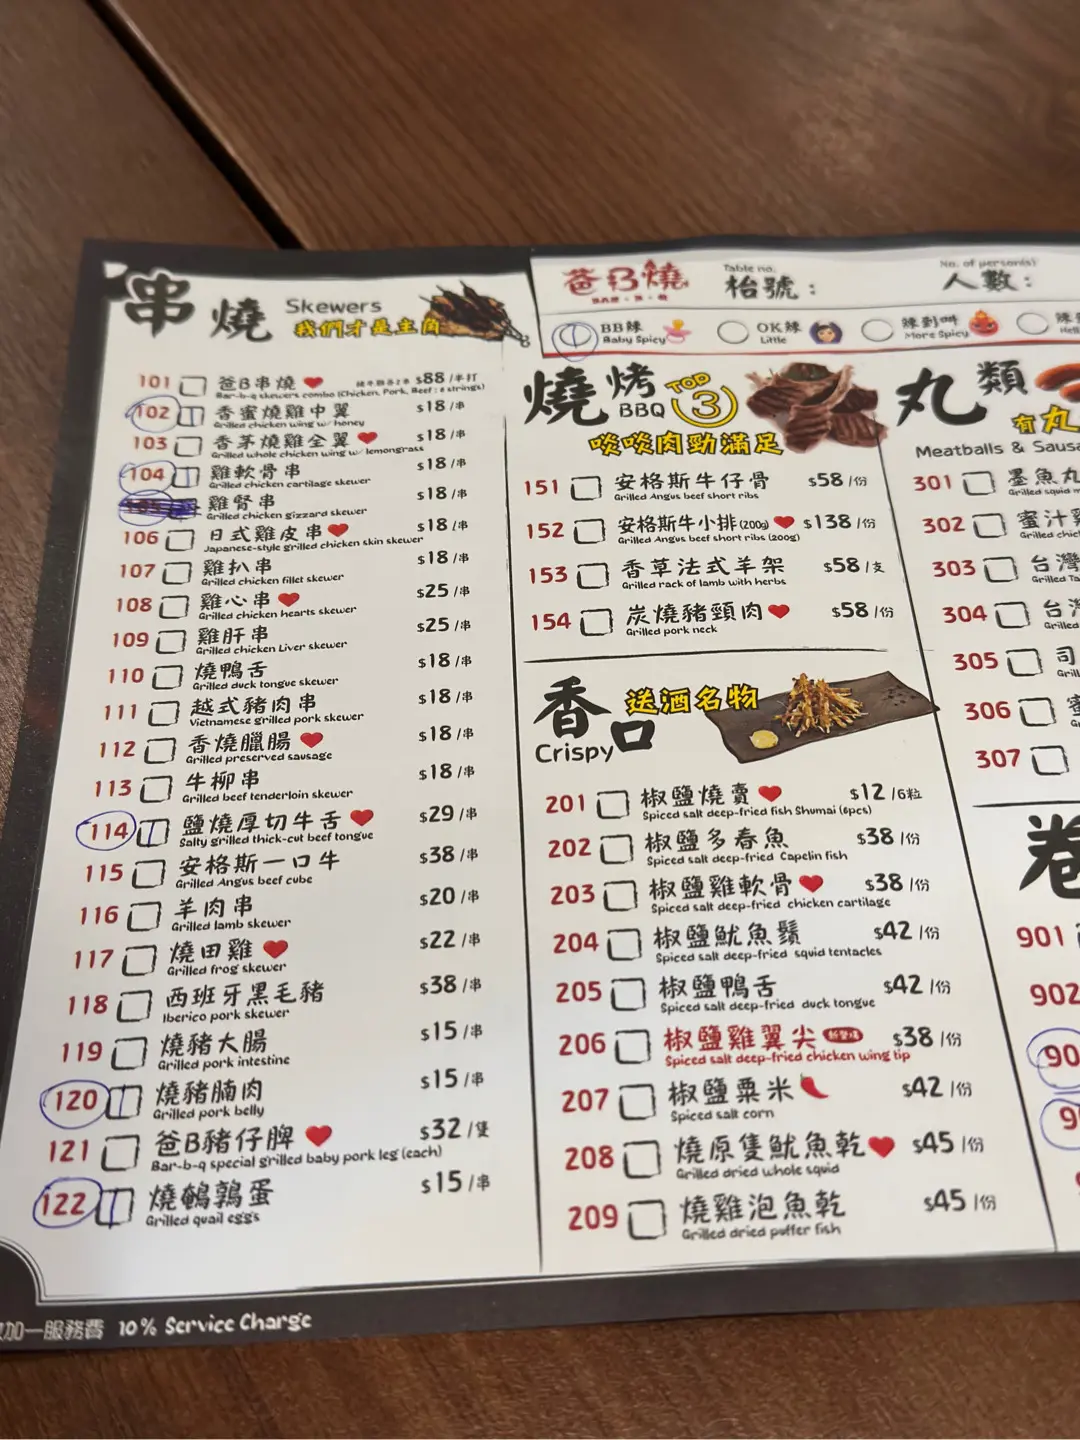 串燒 Skewers
我們才是主角
101 爸B串燒 $88 /半打
Bar-b-q skewers combo (Chicken, Pork, Beef : 6 strings)
102 香蜜燒雞中翼 $18 /串
Grilled chicken wing w/ honey
103 香茅燒雞全翼 $18 /串
Grilled whole chicken wing w/ lemongrass
104 雞軟骨串 $18 /串
Grilled chicken cartilage skewer
105 雞腎串 $18 /串
Grilled chicken gizzard skewer
106 日式雞皮串 $18 /串
Japanese-style grilled chicken skin skewer
107 雞扒串 $18 /串
Grilled chicken fillet skewer
108 雞心串 $25 /串
Grilled chicken hearts skewer
109 雞肝串 $25 /串
Grilled chicken Liver skewer
110 燒鴨舌 $18 /串
Grilled duck tongue skewer
111 越式豬肉串 $18 /串
Vietnamese grilled pork skewer
112 香燒臘腸 $18 /串
Grilled preserved sausage
113 牛柳串 $18 /串
Grilled beef tenderloin skewer
114 鹽燒厚切牛舌 $29 /串
Salty grilled thick-cut beef tongue
115 安格斯一口牛 $38 /串
Grilled Angus beef cube
116 羊肉串 $20 /串
Grilled lamb skewer
117 燒田雞 $22 /串
Grilled frog skewer
118 西班牙黑毛豬 $38 /串
Iberico pork skewer
119 燒豬大腸 $15 /串
Grilled pork intestine
120 燒豬腩肉 $15 /串
Grilled pork belly
121 爸B豬仔脾 $32 /隻
Bar-b-q special grilled baby pork leg (each)
122 燒鵪鶉蛋 $15 /串
Grilled quail eggs
加一服務費 10% Service Charge
爸B燒
Table no.
枱號：
No. of person(s)
人數：
BB辣
Baby Spicy
OK辣
Little
辣到叫
More Spicy
辣
燒烤 BBQ TOP 3
啖啖肉勁滿足
151 安格斯牛仔骨 $58 /份
Grilled Angus beef short ribs
152 安格斯牛小排 (200g) $138 /份
Grilled Angus beef short ribs (200g)
153 香草法式羊架 $58 /支
Grilled rack of lamb with herbs
154 炭燒豬頸肉 $58 /份
Grilled pork neck
香口 Crispy
送酒名物
201 椒鹽燒賣 $12 /6粒
Spiced salt deep-fried fish Shumai (6pcs)
202 椒鹽多春魚 $38 /份
Spiced salt deep-fried Capelin fish
203 椒鹽雞軟骨 $38 /份
Spiced salt deep-fried chicken cartilage
204 椒鹽魷魚鬚 $42 /份
Spiced salt deep-fried squid tentacles
205 椒鹽鴨舌 $42 /份
Spiced salt deep-fried duck tongue
206 椒鹽雞翼尖 $38 /份
Spiced salt deep-fried chicken wing tip
207 椒鹽粟米 $42 /份
Spiced salt corn
208 燒原隻魷魚乾 $45 /份
Grilled dried whole squid
209 燒雞泡魚乾 $45 /份
Grilled dried puffer fish
丸類
有丸
Meatballs & Sausa
301 墨魚丸
Grilled squid m
302 蜜汁雞
Grilled chic
303 台灣
Grilled Ta
304 台灣
Grille
305 司
Grill
306 蜜
307
卷
901
902
90
9